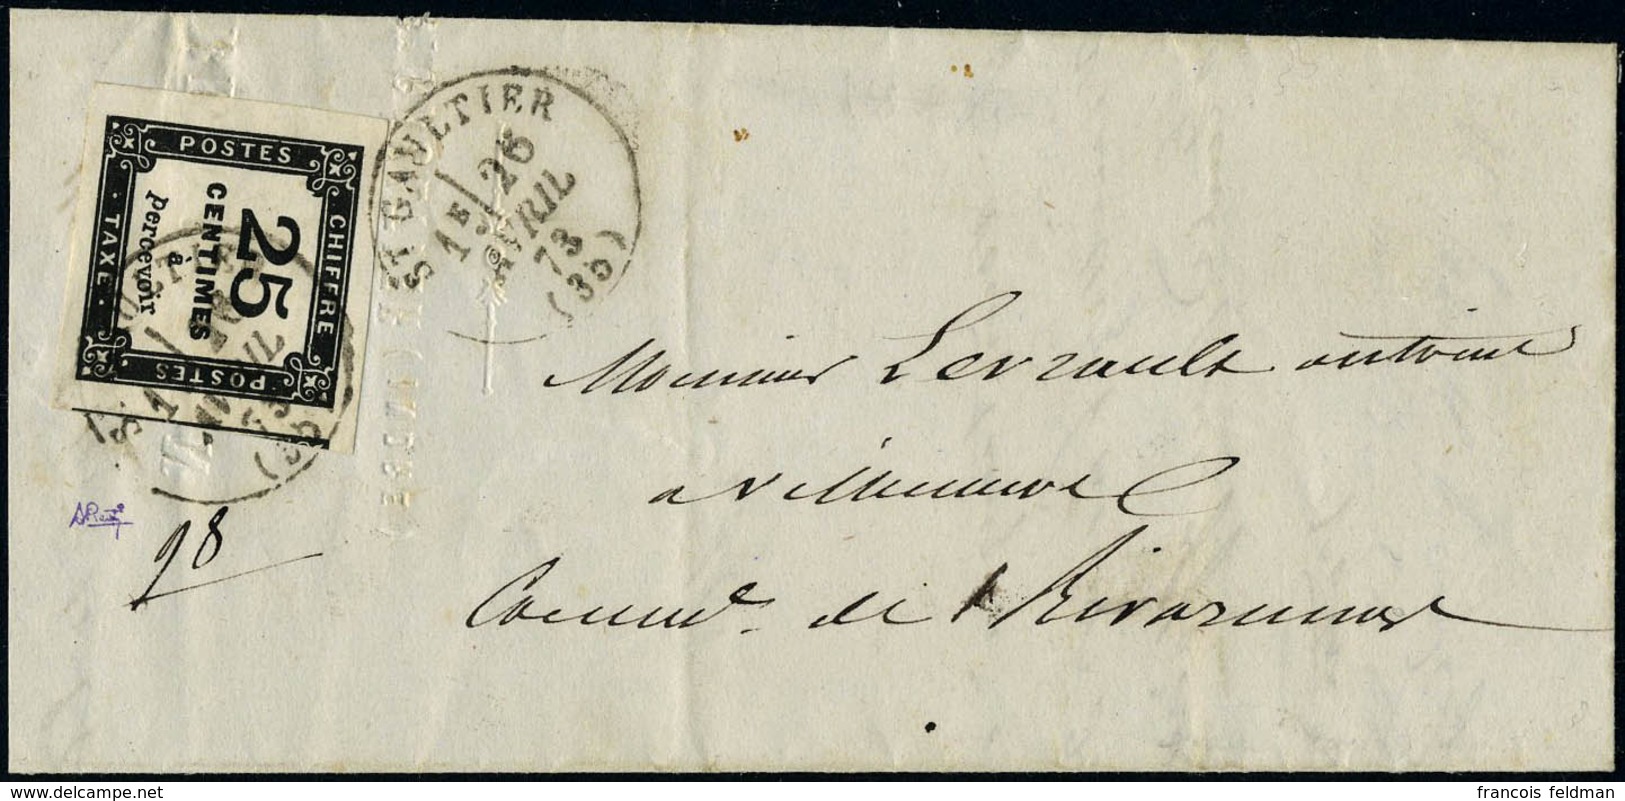 POSTES
CHIFFRE
TAXE
POSTES
25
CENTIMES
à
percevoir
ST GAULTIER
1E
26
AVRIL
73
(35)
Monsieur Levrault antoine
a villeneuve
Commne. de Rivarennes
98
delcampe.net
francois feldman